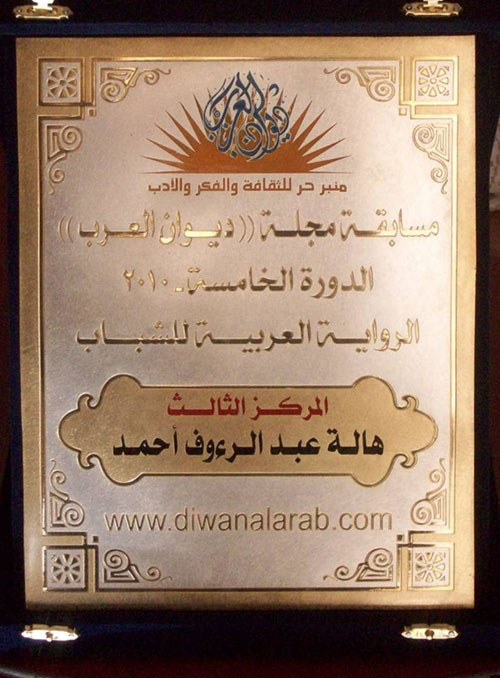 ديوان العرب
منبر حر للثقافة والفكر والأدب
مسابقة مجلة ((ديوان العرب))
الدورة الخامسة - ٢٠١٠
الرواية العربية للشباب
المركز الثالث
هالة عبد الرءوف أحمد
www.diwanalarab.com